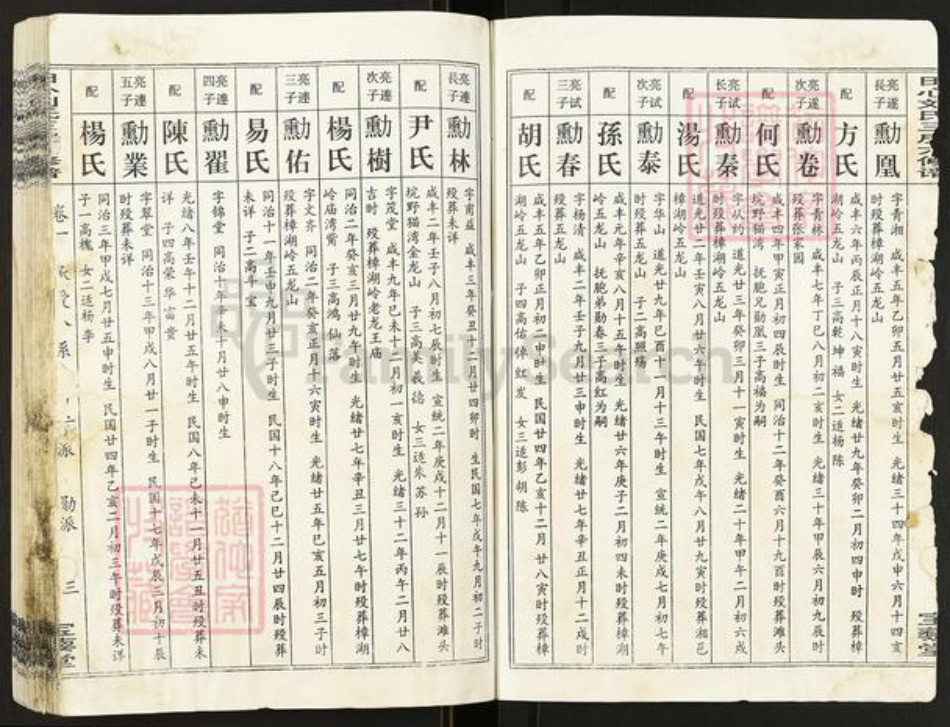 亮遂長子 勳凰 字青湘 咸丰五年乙卯五月廿五亥时生 光緒三十四年戊申六月十四亥时殁葬樟湖岭五龙山
配 方氏 咸丰六年丙辰正月十戌时生 光緒廿九年癸卯二月初四申时 殁葬湖岭五龙山 子三高乾 坤 福 女二适杨 陈
亮遂次子 勳卷 字青林 咸丰七年丁巳八月初二亥时生 光緒三十年甲辰六月初九辰时殁葬张家园
配 何氏 咸丰四年甲寅正月初四辰时生 同治十二年癸酉六月十九酉时殁葬滩头坑野猫湾 抚胞兄勋凰三子高福为嗣
亮试长子 勳秦 字从约 道光廿三年癸卯三月十一寅时生 光緒二十年甲午二月初六戌时殁葬樟湖岭五龙山
配 湯氏 道光廿二年壬寅八月廿六午时生 民国七年戊午八月廿九寅时殁葬湘邑樟湖岭五龙山
亮试次子 勳泰 字华山 道光廿九年己酉十一月十三午时生 宣統二年庚戌七月初七午时殁葬五龙山 子二高照 殇
配 孫氏 咸丰元年辛亥八月十五午时生 光緒廿六年庚子二月初四未时殁葬樟湖岭五龙山 抚胞弟勋春三子高红为嗣
亮试三子 勳春 字杨清 咸丰二年壬子九月廿三申时生 光緒廿七年辛丑正月十二戌时殁葬五龙山
配 胡氏 咸丰五年乙卯正月初二申时生 民国廿四年乙亥十二月 廿八寅时殁葬樟湖岭五龙山 子四高佑 倬 红 发 女三适彭 胡 陈
亮連長子 勳林 字甫益 咸丰三年癸丑十二月廿四卯时 生民国七年戊午九月初二子时殁葬未详
配 尹氏 咸丰二年壬子八月初七辰时生 宣統二年庚戌十二月十一辰时殁葬滩头坑野猫湾金龙山 子三高美 義 德 女三适朱 苏 孙
亮連次子 勳樹 字茂堂 咸丰九年己未十二月初一亥时生 光緒三十二年丙午二月廿八吉时 殁葬樟湖岭老龙王庙
配 楊氏 同治二年癸亥三月廿九午时生 光緒廿七年辛丑三月廿七未时殁葬樟湖岭庙湾膂 子三高鸿 仙 落
亮連三子 勳佑 字文齐 同治二年癸亥正月十六寅时生 光緒廿五年己亥五月初三子时殁葬樟湖岭五龙山
配 易氏 同治十一年壬申九月廿三子时生 民国十八年己巳十二月廿四辰时殁葬未详 子二高年 宝
亮連四子 勳翟 字锦堂 同治十年辛未十月廿八申时生
配 陳氏 光緒八年壬午十二月廿五午时生 民国八年己未十一月廿五丑时殁葬未详 子四高荣 华 富 贵
亮連五子 勳業 字翠堂 同治十三年甲戌八月廿一子时生 民国十七年戊辰三月初十辰时殁葬未详
配 楊氏 同治三年甲戌七月廿五申时生 民国廿四年乙亥二月初三午时殁葬未详 子一高槐 女二适杨 李
卷一 勋派 三
FamilySearch